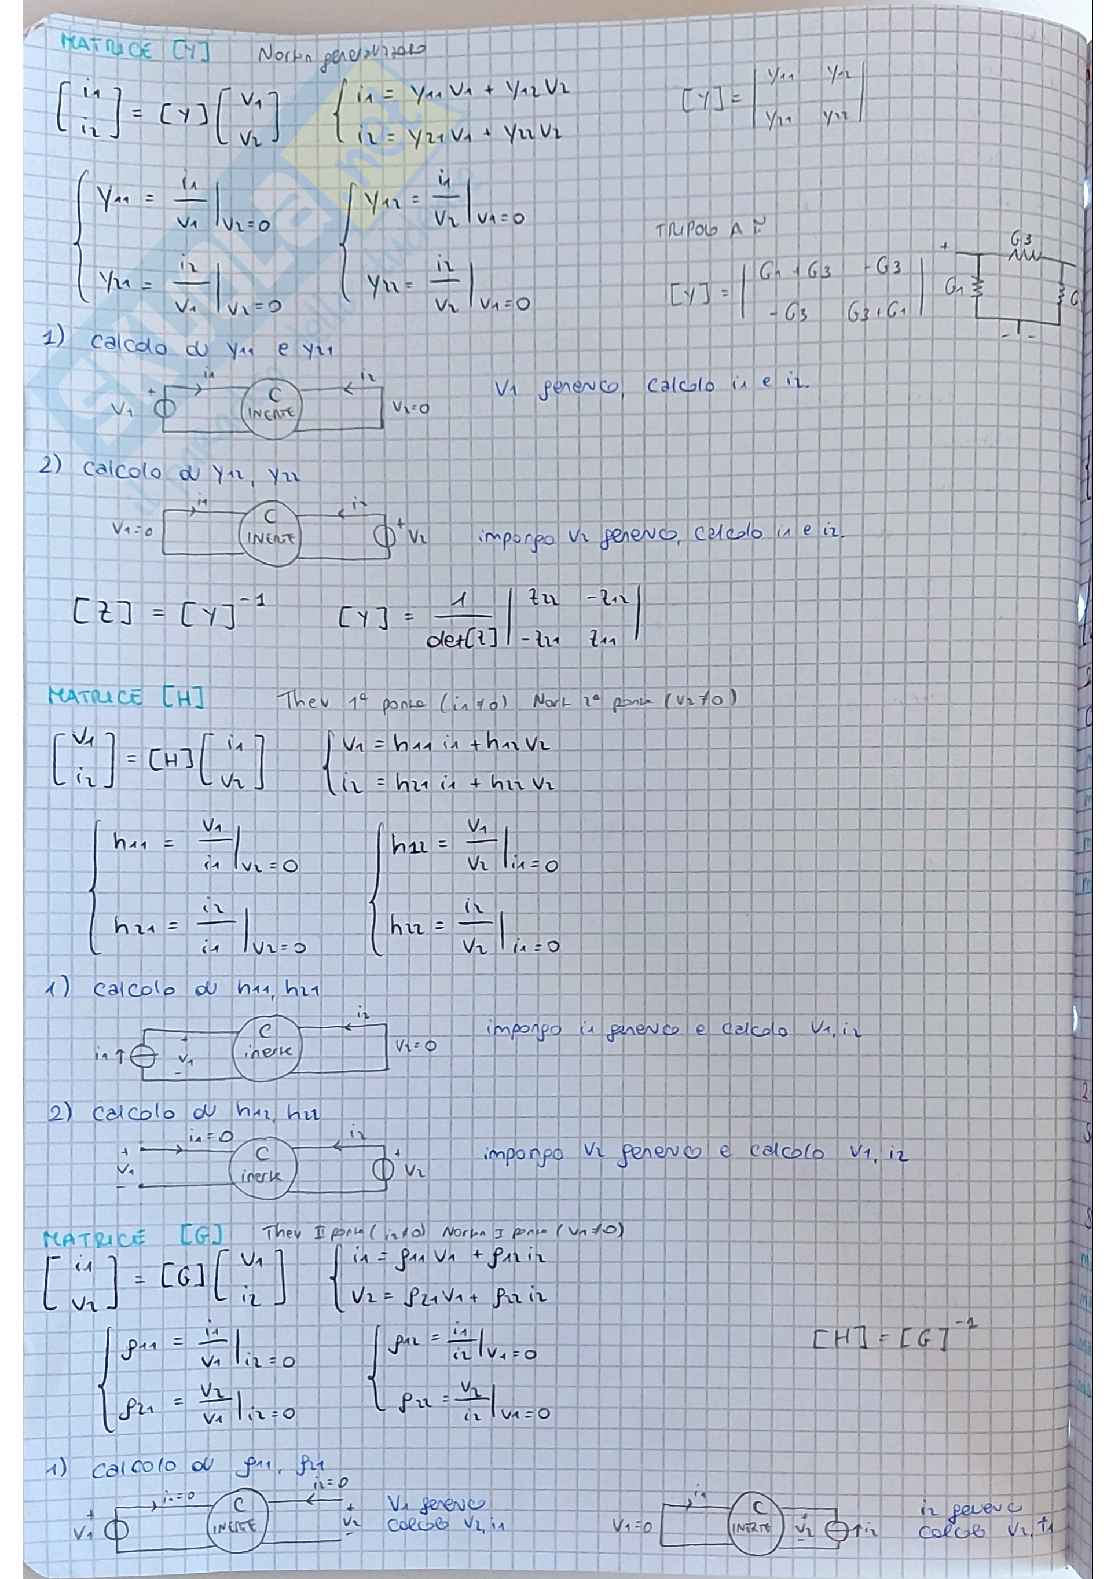 MATRICE [Y] Norton generalizzato
[i1 i2] = [Y] [v1 v2] { i1 = y11 v1 + y12 v2 [Y] = | y11 y12
i2 = y21 v1 + y22 v2 y21 y22 |
{ y11 = i1/v1 | v2=0 { y12 = i1/v2 | v1=0
TRIPOLO A π
G3
y21 = i2/v1 | v2=0 y22 = i2/v2 | v1=0 [Y] = | G1+G3 -G3
-G3 G3+G1 | G1 G
1) calcolo di y11 e y21
V1 i1 C INERTE i2 V2=0 V1 generico, calcolo i1 e i2.
2) calcolo di y12, y22
V1=0 i1 C INERTE i2 + V2 impongo V2 generico, calcolo i1 e i2.
[Z] = [Y]^-1 [Y] = 1/det[Z] | z22 -z12
-z21 z11 |
MATRICE [H] Thev 1ª porta (i1≠0) Nort 2ª porta (v2≠0)
[v1 i2] = [H] [i1 v2] { v1 = h11 i1 + h12 v2
i2 = h21 i1 + h22 v2
{ h11 = v1/i1 | v2=0 { h12 = v1/v2 | i1=0
h21 = i2/i1 | v2=0 h22 = i2/v2 | i1=0
1) calcolo di h11, h21
i1 ↑ + V1 - C inerte i2 V2=0 impongo i1 generico e calcolo V1, i2
2) calcolo di h12, h22
+ V1 - i1=0 C inerte i2 + V2 impongo V2 generico e calcolo V1, i2
MATRICE [G] Thev II porta (i2≠0) Norton I porta (v1≠0)
[i1 v2] = [G] [v1 i2] { i1 = g11 v1 + g12 i2
v2 = g21 v1 + g22 i2
{ g11 = i1/v1 | i2=0 { g12 = i1/i2 | v1=0 [H] = [G]^-1
g21 = v2/v1 | i2=0 g22 = v2/i2 | v1=0
1) calcolo di g11, g21
+ V1 i1=0 C INERTE i2=0 + V2 - V1 generico
calcolo V2, i1
V1=0 i1 C INERTE V2 - ↑ i2 i2 generic
calcolo V2, i1
SKUOLA.net